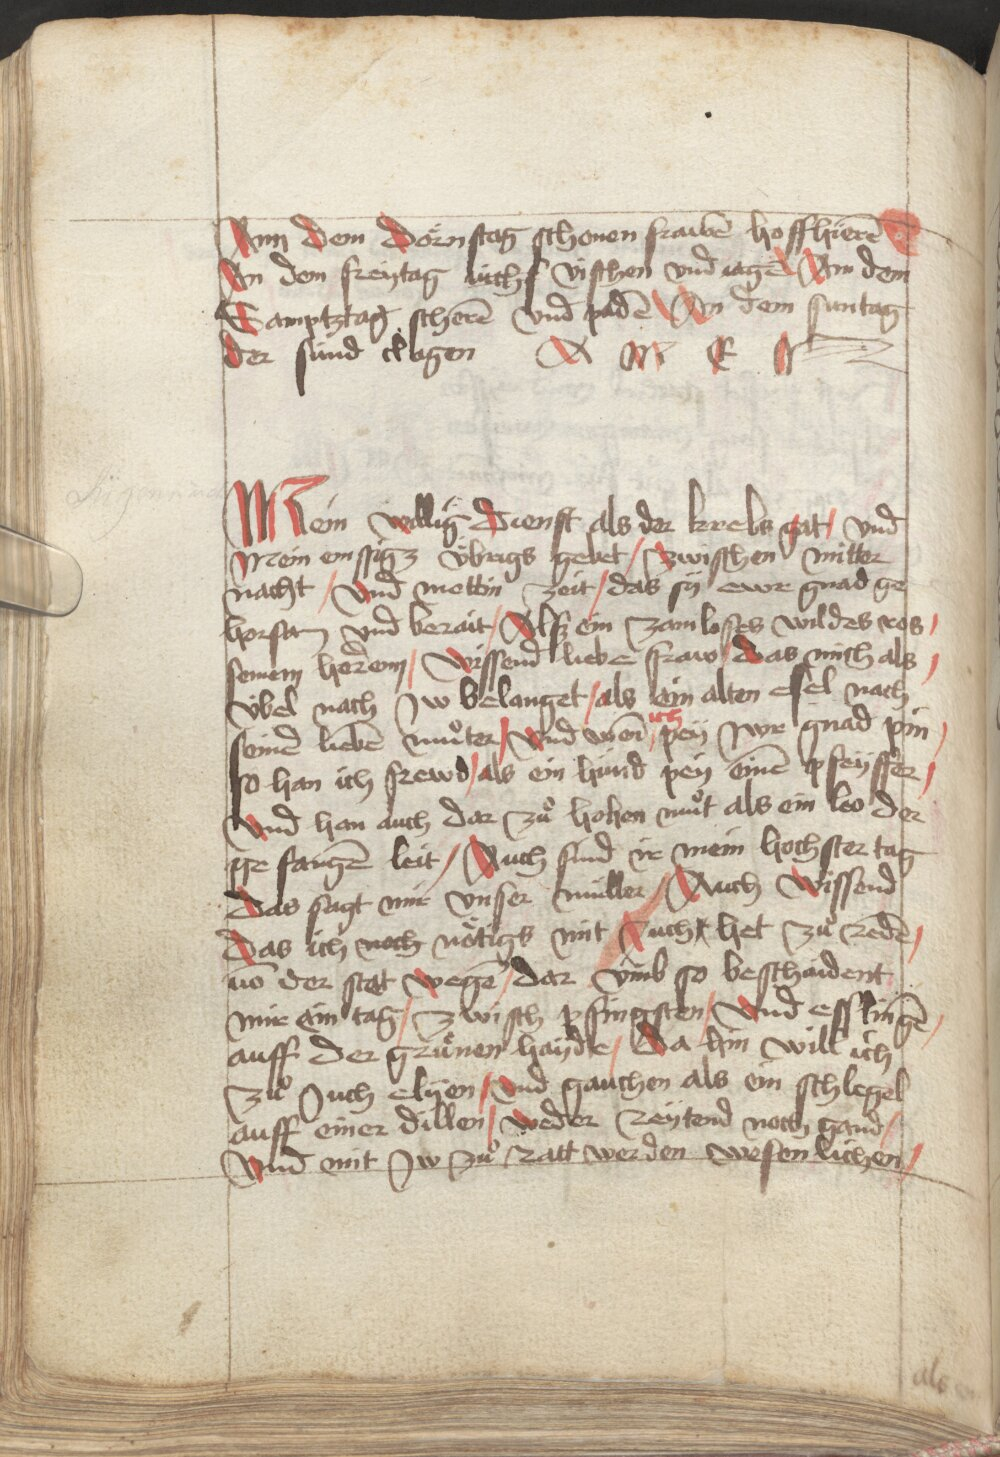 Ann dem Dörnstag schonen frawē hoffhierē
An dem freÿtag iüchs vischen vnd iagē Am dem
Samptztag scherē vnd padē An dem suntag
der sünd clagen A M E N
Mein willig Dienst als der krebs gat / vnd
Mein emssigz v̈brigs gebet / zwischen mitter
nacht / vnd mettin zeit / das sÿ ewr gnad ge
horsam vnd berait / Alß ein zamloses wildes ros /
seinem herrenn / Wissend liebe fraw das mich als /
v̈bel nach Jw belanget / als ein alten esel nach
seinē liebē muͦter / vnd wen̄ ich peÿ Jwr gnad pin /
so han ich frewd / als ein hund peÿ einē pfeÿffer /
vnd han auch dar zuͦ hohen muͦt als ein leo der
ge fangē leit / Auch sind ir mein hochster tag
Das sagt mir vnser müller / Auch Wissend
Das ich noch nötigs mit Juch het zuͦ redē /
vō der stat wegē / dar vmb so beschaident
mir ain tag / zwisch pfingsten / vnd esslingē /
auff der grünen haÿde / Da hin will ich
zuͦ Juch elÿen / vnd gauchen als ein schlegel
auff einer dillen / weder reÿtend noch gand /
Vnd mit Jw zuͦ ratt werden wesenlichen /
als